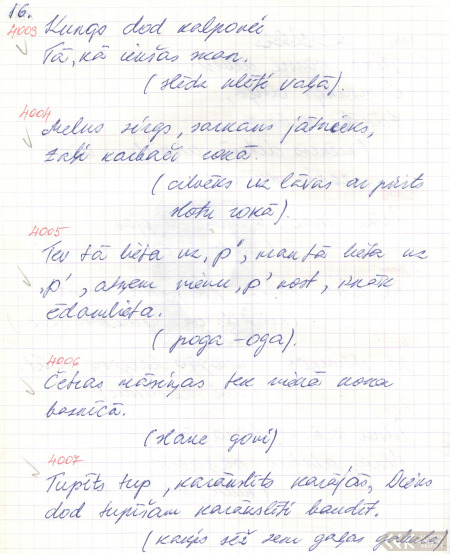 16.
4003 Kungs dod kalponei
Tā, kā iekšas skan.
(slēdz klēti vaļā).
4004
Melns zirgs, sarkans jātnieks,
zaļi karbači rokā.
(cilvēks uz lāvas ar pirts
slotu rokā).
4005
Tev tā lieta uz „p", man tā lieta uz
„p", atņem vienu „p" nost, iznāk
ēdamlieta.
(poga - oga).
4006
Četras māsiņas tek vienā koka
baznīcā.
(slauc govi)
4007
Tupīts tup, karānslīts karājās, Dievs
dod tupīšam karānslīti baudīt.
(kaķis sēž zem gaļas gabala)